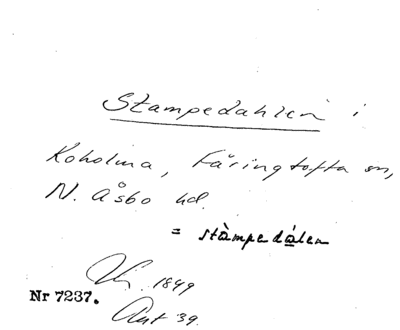 Stampedahlen i
Koholma, Färingtofta sn,
N. Åsbo hd.
= stàmpedálen
1899
Nr 7237.
Ant 39.